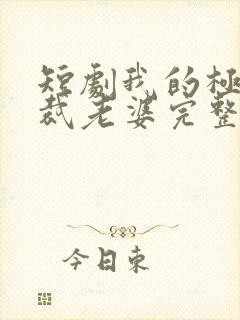 短劇我的極
裁老婆完整
今日東